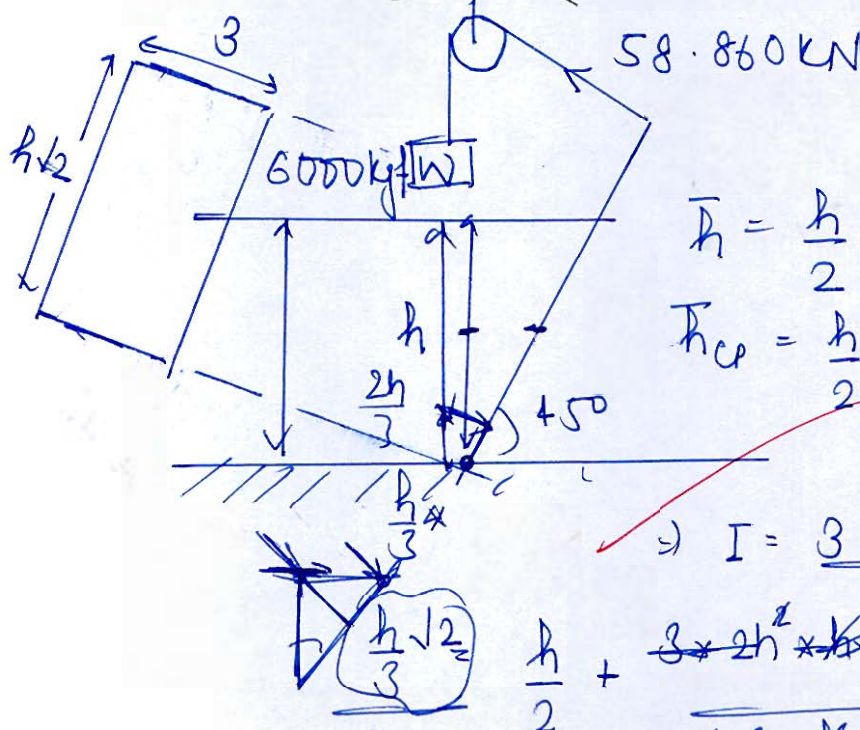 3
58.860 KN
h√2
6000 kgf W
h̄ = h/2
h
h̄cp = h/2
2h/3
45°
h/3
=) I = 3
h/3 √2
h/2 +